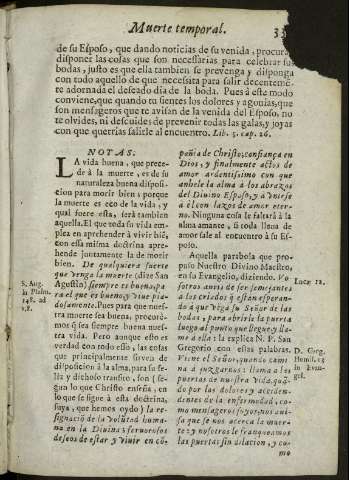 Muerte temporal. 33
de su Esposo, que dando noticias de su venida, procura
disponer las cosas que son necessarias para celebrar su
bodas, justo es que ella tambien se prevenga y disponga
con todo aquello de que necessita para salir decenteme-
te adornada el deseado dia de la boda. Pues à este modo
conviene, que quando tu sientes los dolores y agonias, que
son mensageros que te avisan de la venida del Esposo, no
te olvides, ni descuides de prevenir todas las galas, y joyas
con que querrias salirle al encuentro. Lib. 5. cap. 26.
NOTAS.
LA vida buena, que prece-
de à la muerte, es de su
naturaleza buena disposi-
cion para morir bien; porque
la muerte es eco de la vida, y
qual fuere esta, serà tambien
aquella. El que toda su vida em-
plea en aprehender à vivir biē,
con essa misma doctrina apre-
hende juntamente la de morir
bien. De qualquiera suerte
que venga la muerte (dize San
Agustin) siempre es buena, pa-
ra el que es bueno, y vive pia-
dosamente. Pues para que nues-
tra muerte sea buena, procurè-
mos q sea siempre buena nues-
tra vida. Pero aunque esto es
verdad con todo esso, las cosas
que principalmente sirven de
disposicion à la alma, para su fe-
liz y dichoso transito, son (se-
gun lo que Christo enseña, en
lo que se sigue à esta doctrina,
suya, que hemos oydo) la re-
signaciō de la volūtad huma-
na en la Divina; fervorosos
deseos de estar y vivir en cō-
S. Aug.
in Psalm.
148. ad
v. 8.
pañia de Christo, confiança en
Dios, y finalmente actos de
amor ardentissimo con que
anhele la alma à los abrazos
del Divino Esposo, y à vnirse
à èl con lazos de amor eter-
no. Ninguna cosa le faltarà à la
alma amante, si toda llena de
amor sale al encuentro à su Es-
poso.
Aquella parabola que pro-
puso Nuestro Divino Maestro,
en su Evangelio, diziendo. Vo-
sotros aveis de ser semejantes
à los criados q estàn esperan-
do à que vēga su Señor de las
bodas, para abrirle la puerta
luego al punto que llegue y lla-
me à ella: la explica N. P. San
Gregorio con estas palabras.
Viene el Señor, quando cami
na à juzgarnos: llama à las
puertas de nuestra vida, quā-
do por los dolores y acciden-
dentes de la enfermedad, co-
mo mensageros suyos, nos avi-
sa que se nos acerca la muer-
te: y nosotros le franqueamos
las puertas sin dilacion, y co-
mo
Lucæ 12.
D. Greg.
Homil. 13
in Evan-
gel.